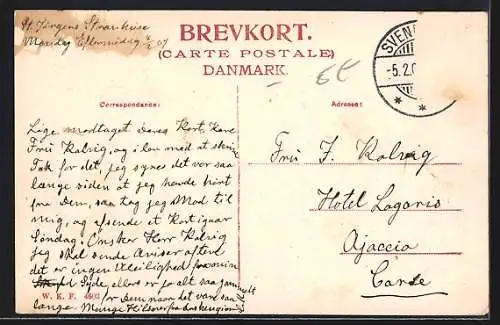 St. Jørgens Strandhuse
Mandag Eftermiddag 4/2 07
BREVKORT.
(CARTE POSTALE)
DANMARK.
SVEN
-5.2.
Correspondance:
Adresse:
Lige modtaget Deres Kort, Kære
Fru Kalvig, og iler med at skrive
Tak for det, jeg synes det var saa
længe siden at jeg havde hørt
fra Dem, saa tog jeg Mod til
mig, og afsendte et Kort igaar
Søndag. Ønsker Herr Kalvig
jeg skal sende Aviser oftere
det er ingen Uleilighed
ellers er jo alt saa gammelt
for Dem naar det var saa
længe. Mange Hilsner fra
W. K. F. 4603
Fru F. Kalvig
Hotel
Ajaccio
Corse